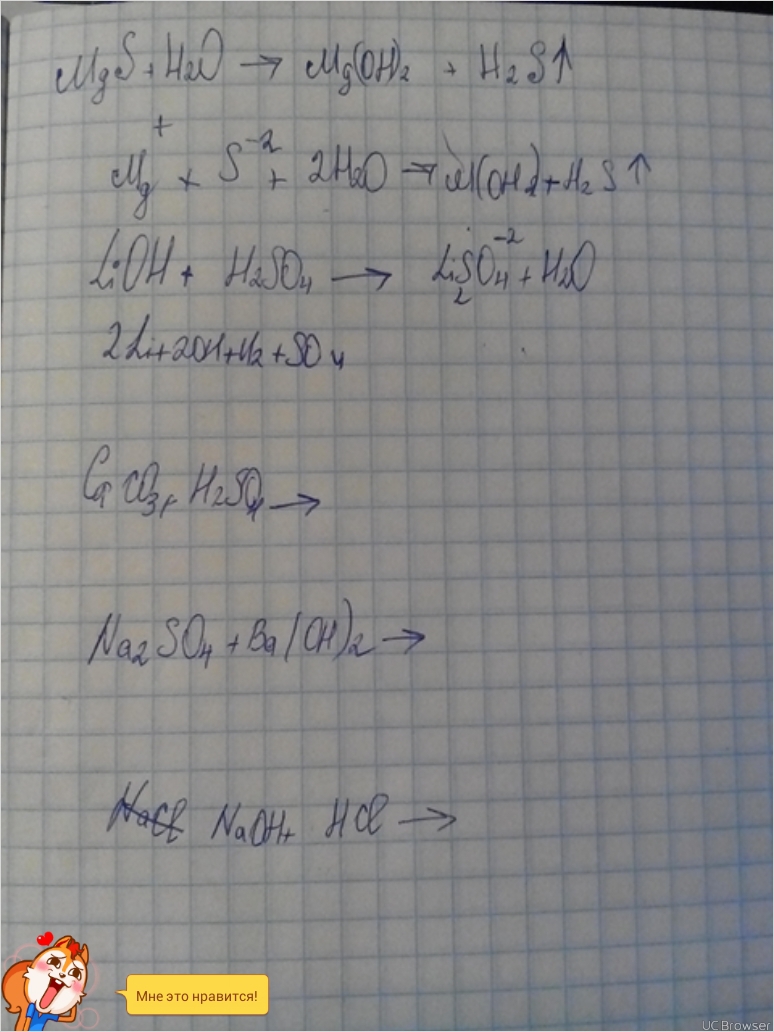 MgS + H2O → Mg(OH)2 + H2S↑
Mg⁺ + S⁻² + 2H2O → M(OH2) + H2S↑
LiOH + H2SO4 → Li2SO4⁻² + H2O
2Li+2OH+H2+SO4
CaCO3+ H2SO4 →
Na2SO4 + Ba(OH)2 →
NaCl NaOH+ HCl →
Мне это нравится!
UC Browser